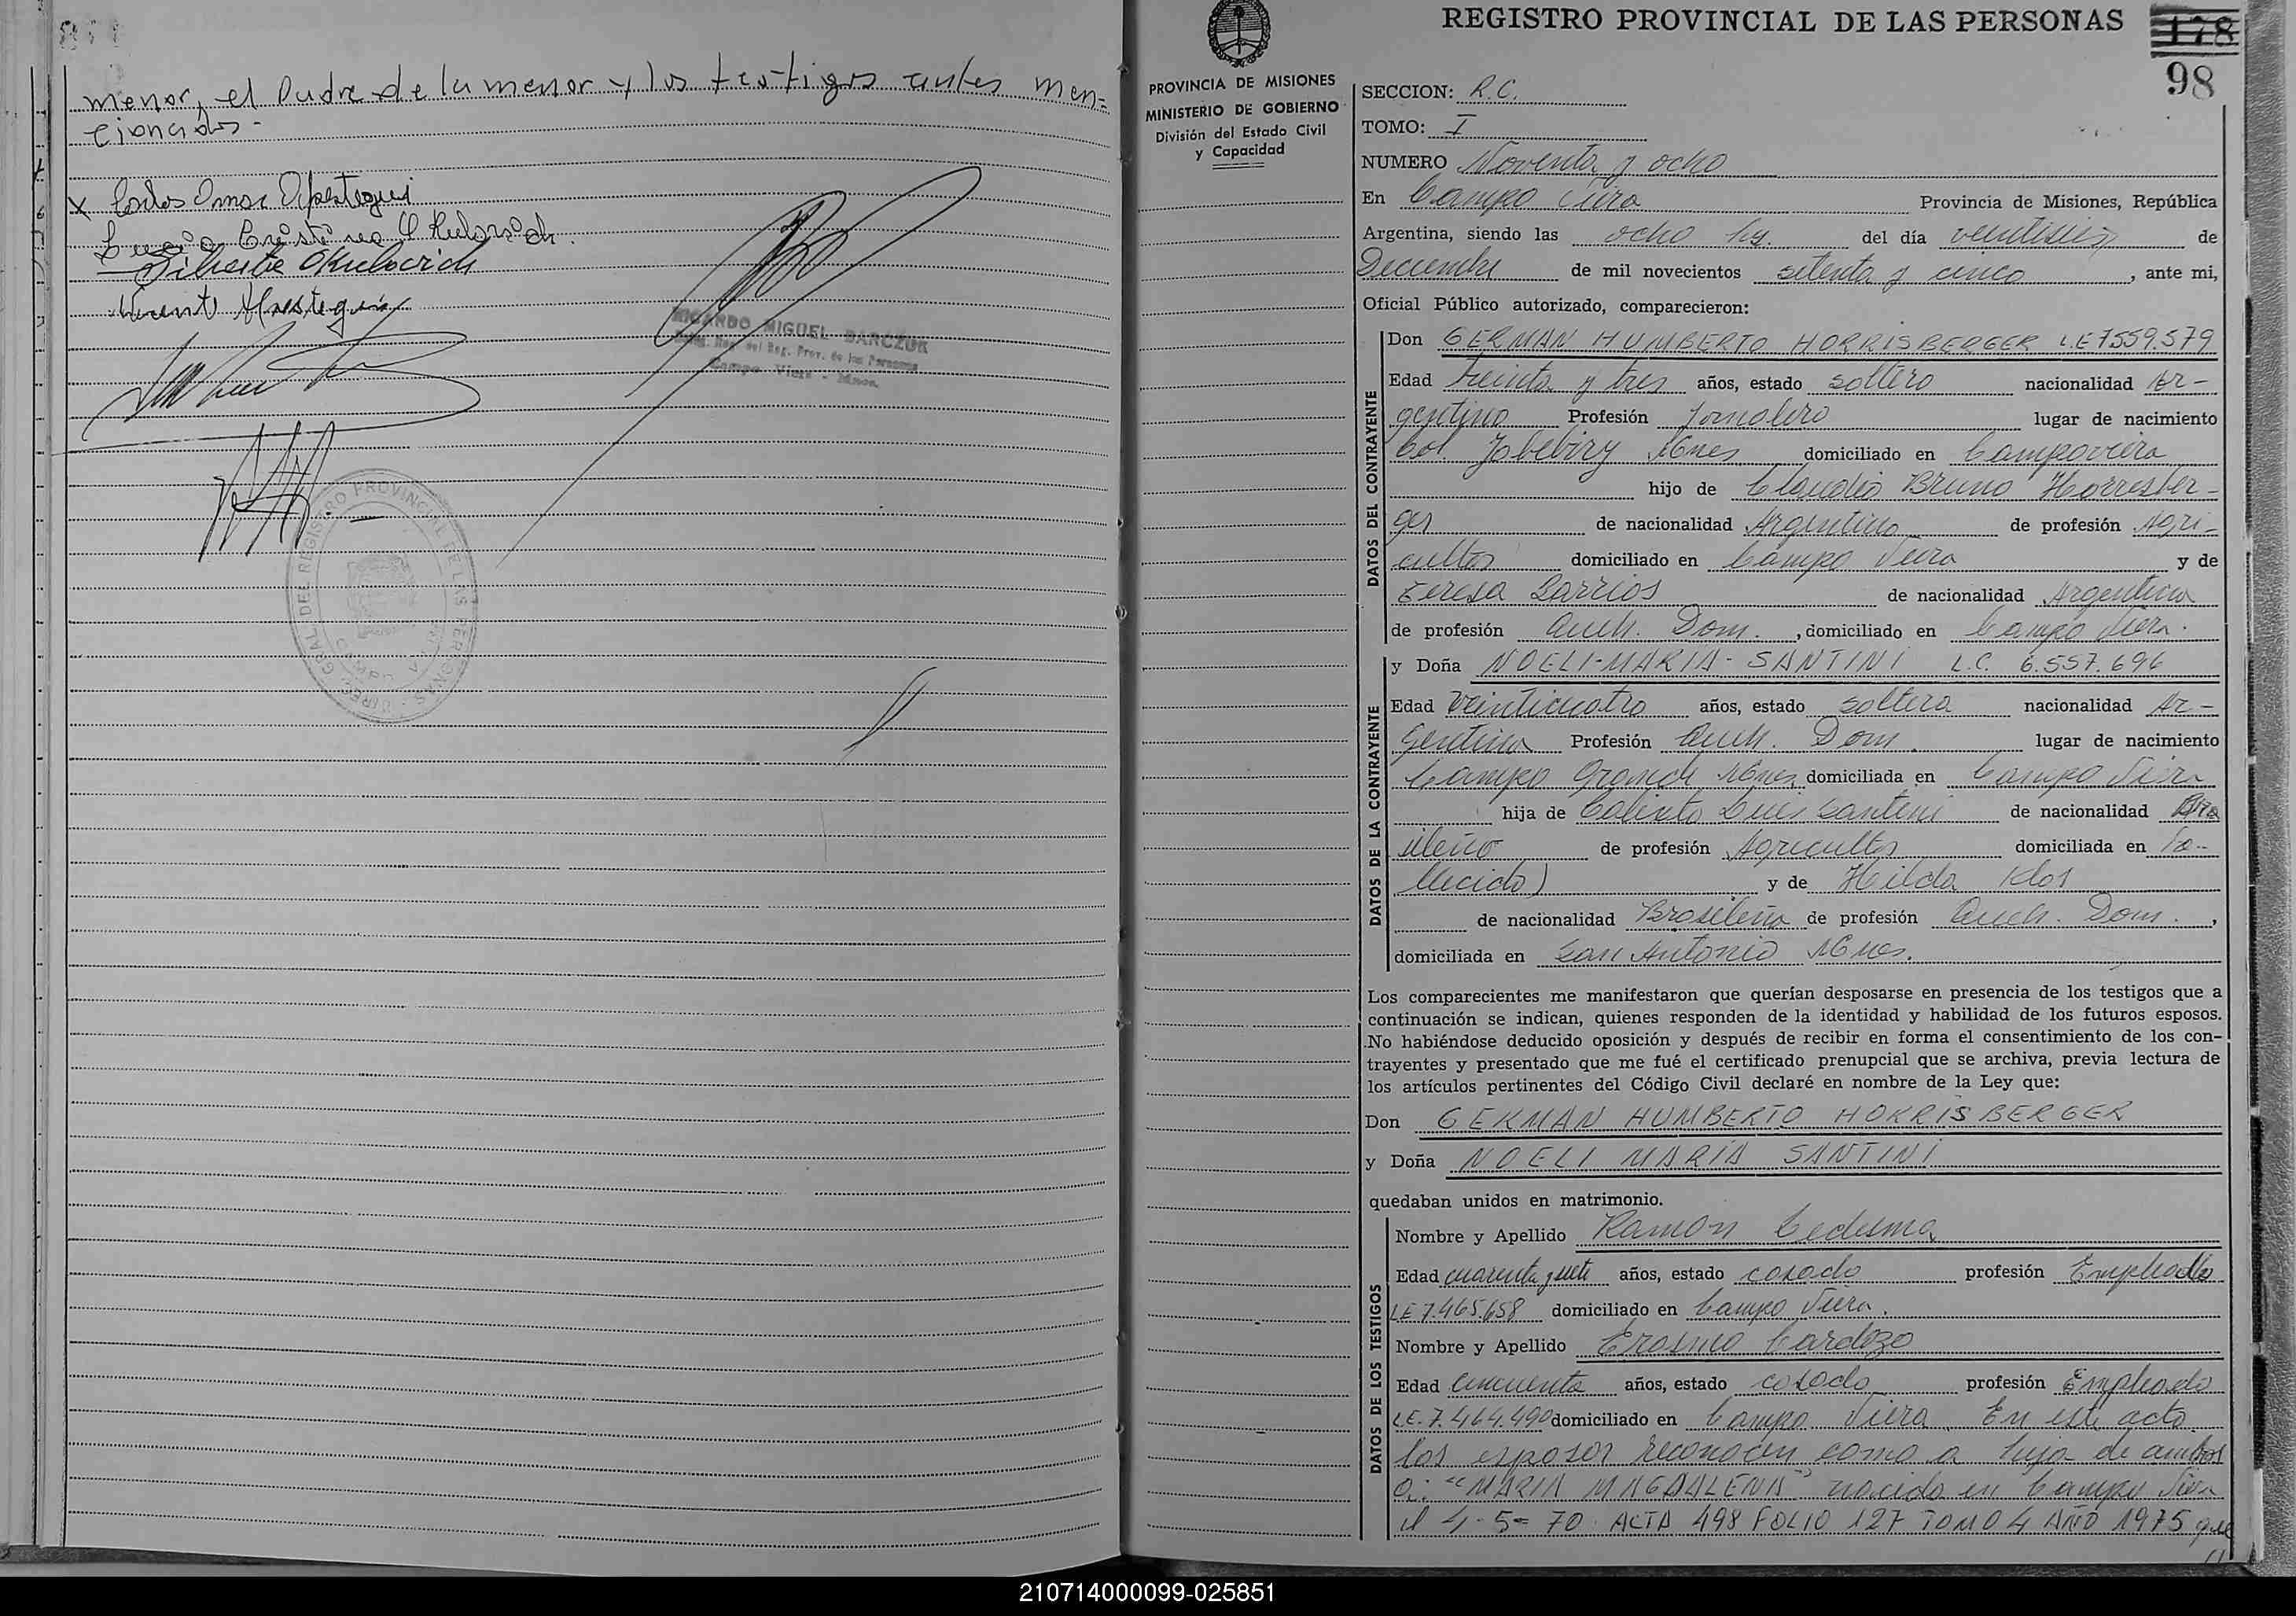 menor, el Padre de la menor y los testigos antes men=
cionados-
x Carlos Omar Apestegui
Lucia Cristina Okulovich.
Gilberto Okulovich
Vicente Apestegui
RICARDO MIGUEL BARCZUK
Deleg. Reg. del Reg. Prov. de las Personas
Campo Viera - Mnes.
DIREC. GRAL. DEL REGISTRO PROVINCIAL DE LAS PERSONAS
REGISTRO PROVINCIAL DE LAS PERSONAS
178
98
PROVINCIA DE MISIONES
MINISTERIO DE GOBIERNO
División del Estado Civil
y Capacidad
SECCION: R.C.
TOMO: I
NUMERO Noventa y ocho
En Campo Viera Provincia de Misiones, República
Argentina, siendo las ocho hs. del día veintiseis de
Diciembre de mil novecientos setenta y cinco, ante mi,
Oficial Público autorizado, comparecieron:
DATOS DEL CONTRAYENTE
Don GERMAN HUMBERTO HORRISBERGER L.E 7.559.579
Edad treinta y tres años, estado soltero nacionalidad Ar-
gentino Profesión Jornalero lugar de nacimiento
Col. Yabebiry Mnes domiciliado en Campo viera
hijo de Claudio Bruno Horrisber-
ger de nacionalidad Argentino de profesión Agri-
cultor domiciliado en Campo Viera y de
Teresa Barrios de nacionalidad Argentina
de profesión Queh. Dom. , domiciliado en Campo Viera.
DATOS DE LA CONTRAYENTE
y Doña NOELI-MARIA-SANTINI L.C. 6.557.696
Edad Veinticuatro años, estado soltera nacionalidad Ar-
gentina Profesión Queh. Dom. lugar de nacimiento
Campo Grande Mnes domiciliada en Campo Viera
hija de Calixto Luis Santini de nacionalidad Bra
sileño de profesión Agricultor domiciliada en Fa-
llecido) y de Hilda Klos
de nacionalidad Brasileña de profesión Queh. Dom. ,
domiciliada en San Antonio Mnes.
Los comparecientes me manifestaron que querían desposarse en presencia de los testigos que a
continuación se indican, quienes responden de la identidad y habilidad de los futuros esposos.
No habiéndose deducido oposición y después de recibir en forma el consentimiento de los con-
trayentes y presentado que me fué el certificado prenupcial que se archiva, previa lectura de
los artículos pertinentes del Código Civil declaré en nombre de la Ley que:
Don GERMAN HUMBERTO HORRISBERGER
y Doña NOELI MARIA SANTINI
quedaban unidos en matrimonio.
DATOS DE LOS TESTIGOS
Nombre y Apellido Ramon Ledesma
Edad cuarenta y siete años, estado casado profesión Empleado
LE 7.465.658 domiciliado en Campo Viera.
Nombre y Apellido Erasmo Cardozo
Edad Cincuenta años, estado casado profesión Empleado
LE. 7.464.490 domiciliado en Campo Viera En este acto
los esposos reconocen como a hija de ambos
a: "MARIA MAGDALENA" nacida en Campo Viera
el 4-5-70 ACTA 498 FOLIO 127 TOMO 4 AÑO 1975 que
210714000099-025851